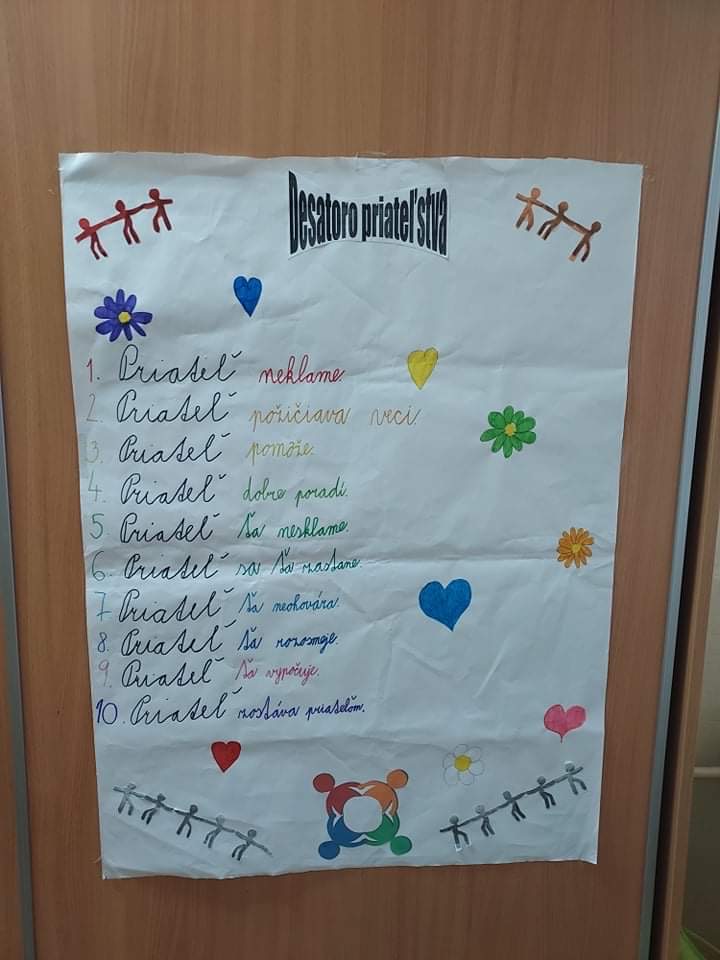 Desatoro priateľstva
1. Priateľ neklame.
2. Priateľ požičiava veci.
3. Priateľ pomôže.
4. Priateľ dobre poradí.
5. Priateľ ťa nesklame.
6. Priateľ sa ťa zastane.
7. Priateľ ťa neohovára.
8. Priateľ ťa rozosmeje.
9. Priateľ ťa vypočuje.
10. Priateľ zostáva priateľom.